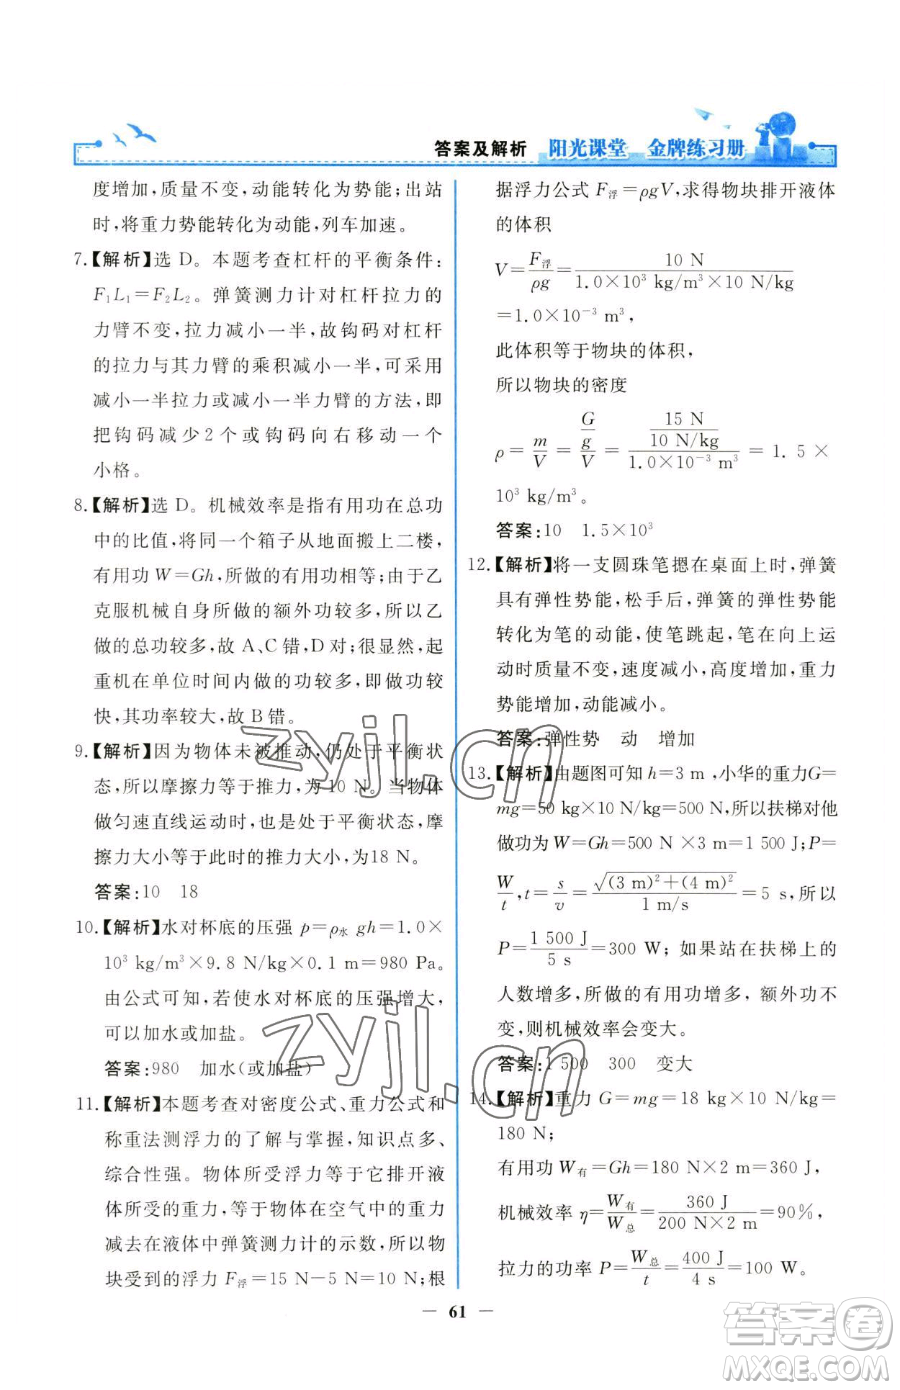 答案及解析 阳光课堂 金牌练习册
度增加,质量不变,动能转化为势能;出站
时,将重力势能转化为动能,列车加速。
7.【解析】选 D。本题考查杠杆的平衡条件:
F₁L₁=F₂L₂。弹簧测力计对杠杆拉力的
力臂不变,拉力减小一半,故钩码对杠杆
的拉力与其力臂的乘积减小一半,可采用
减小一半拉力或减小一半力臂的方法,即
把钩码减少2个或钩码向右移动一个
小格。
8.【解析】选 D。机械效率是指有用功在总功
中的比值,将同一个箱子从地面搬上二楼,
有用功 W=Gh,所做的有用功相等;由于乙
克服机械自身所做的额外功较多,所以乙
做的总功较多,故 A、C 错,D 对;很显然,起
重机在单位时间内做的功较多,即做功较
快,其功率较大,故 B 错。
9.【解析】因为物体未被推动,仍处于平衡状
态,所以摩擦力等于推力,为 10 N。当物体
做匀速直线运动时,也是处于平衡状态,摩
擦力大小等于此时的推力大小,为18 N。
答案:10 18
10.【解析】水对杯底的压强 p=ρ水 gh=1.0×
10³ kg/m³×9.8 N/kg×0.1 m=980 Pa。
由公式可知,若使水对杯底的压强增大,
可以加水或加盐。
答案:980 加水(或加盐)
11.【解析】本题考查对密度公式、重力公式和
称重法测浮力的了解与掌握,知识点多、
综合性强。物体所受浮力等于它排开液
体所受的重力,等于物体在空气中的重力
减去在液体中弹簧测力计的示数,所以物
块受到的浮力 F浮=15 N-5 N=10 N;根
据浮力公式 F浮=ρgV,求得物块排开液体
的体积
V=F浮/ρg=10 N/(1.0×10³ kg/m³×10 N/kg)
=1.0×10⁻³ m³,
此体积等于物块的体积,
所以物块的密度
ρ=m/V=(G/g)/V=(15 N/10 N/kg)/(1.0×10⁻³ m³)=1.5×
10³ kg/m³。
答案:10 1.5×10³
12.【解析】将一支圆珠笔摁在桌面上时,弹簧
具有弹性势能,松手后,弹簧的弹性势能
转化为笔的动能,使笔跳起,笔在向上运
动时质量不变,速度减小,高度增加,重力
势能增加,动能减小。
答案:弹性势 动 增加
13.【解析】由题图可知 h=3 m,小华的重力G=
mg=50 kg×10 N/kg=500 N,所以扶梯对他
做功为 W=Gh=500 N×3 m=1 500 J;P=
W/t,t=s/v=√((3 m)²+(4 m)²)/(1 m/s)=5 s,所以
P=1 500 J/5 s=300 W;如果站在扶梯上的
人数增多,所做的有用功增多,额外功不
变,则机械效率会变大。
答案:1 500 300 变大
14.【解析】重力 G=mg=18 kg×10 N/kg=
180 N;
有用功 W有=Gh=180 N×2 m=360 J,
机械效率 η=W有/W总=360 J/(200 N×2 m)=90%,
拉力的功率 P=W总/t=400 J/4 s=100 W。
61
zyjl.cn
zyjl.cn
答案圈
MXQE.COM